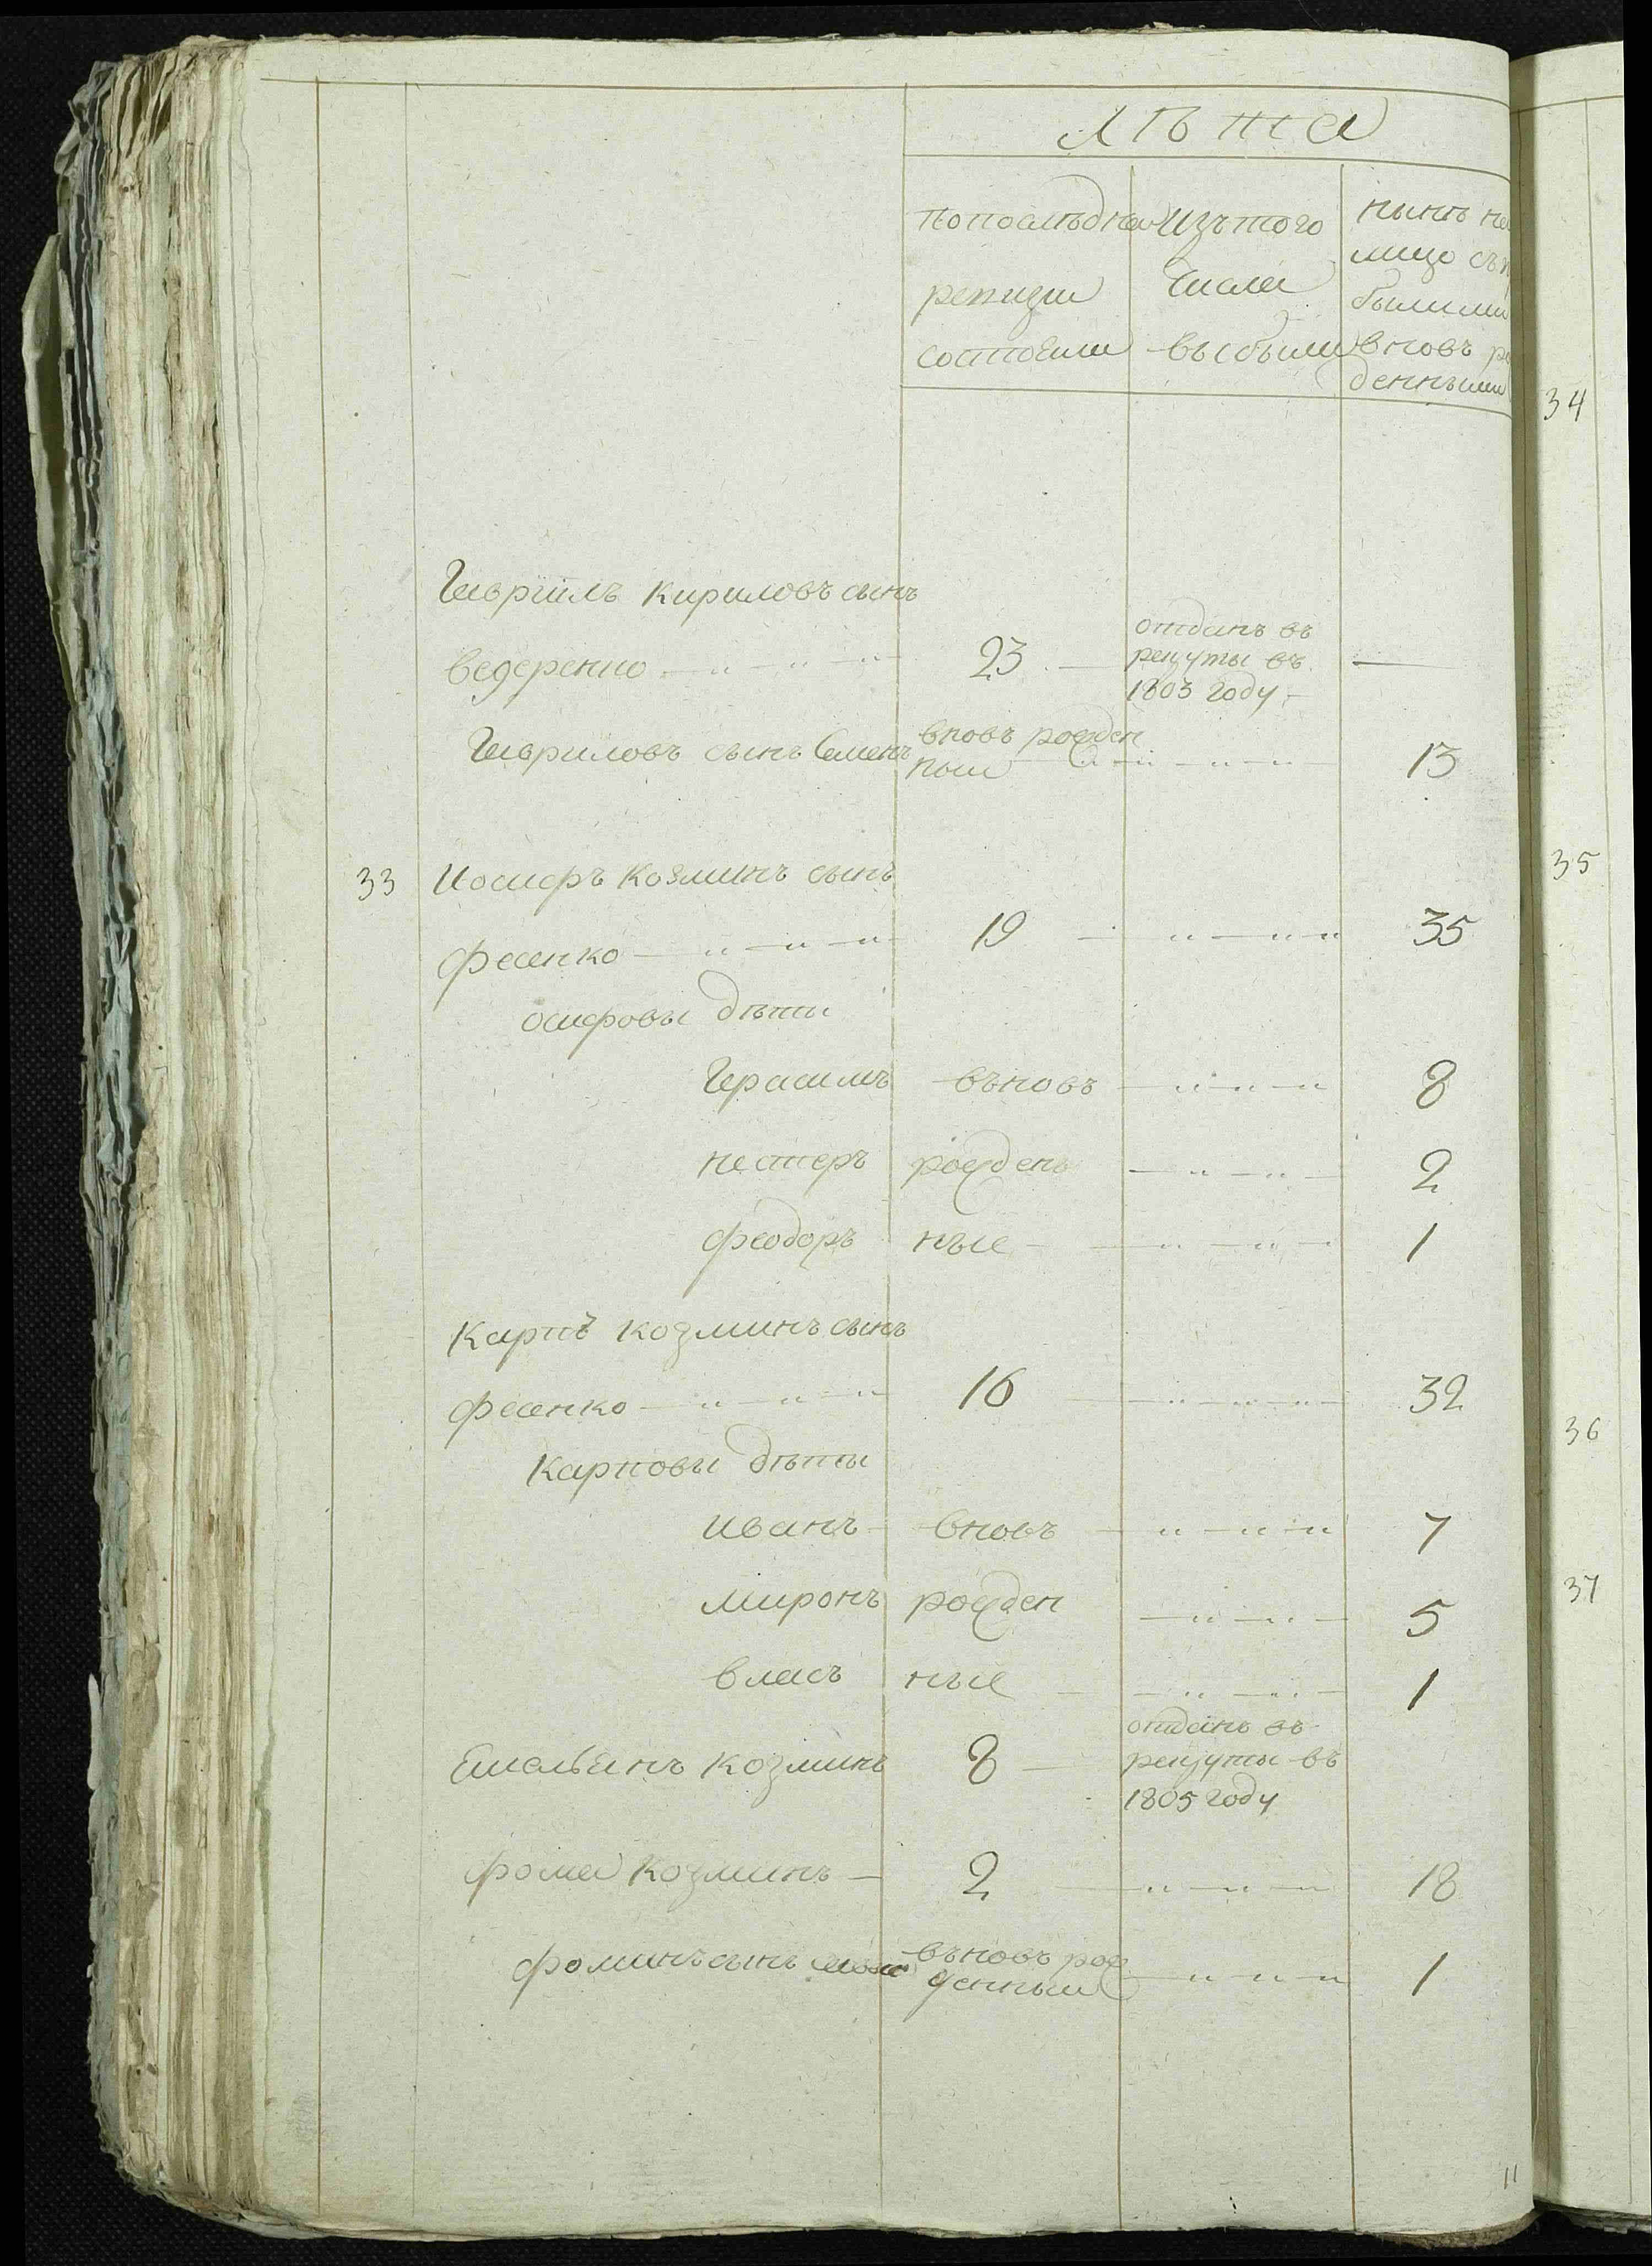 лѣта
по последнеи
ревизии
состояли
изъ того
числа
выбыли
нынѣ на
лицо съ п
былыми
вновь ро
денными
34
Гаврiилъ Кириловъ сынъ
ведеренко — " — " — "
23 —
отданъ въ
рекруты въ
1803 году —
—
Гавриловъ сынъ Семенъ
вновь рожден
ныи — " — " — " — " —
13
33 Иосифъ Козминъ сынъ
35
фесенко — " — " — " —
19 — " — " "
35
осифовы дѣти
Герасимъ въновь — " — " — " 8
нестеръ рожден — " — " — 2
феодоръ ные — " — " — " 1
Карпъ Козминъ сынъ
фесенко — " — " — " 16 — " — " — " — 32
36
Карповы дѣти
иванъ — вновь — " — " — " 7
миронъ рожден — " — " — 5
37
власъ ные — " — " — 1
Емельянъ Козминъ 8 —
отданъ въ
рекруты въ
1805 году
фома Козминъ — 2 — " — " — 18
фоминъ сынъ
въновь рож
денныи — " — " — " 1
11